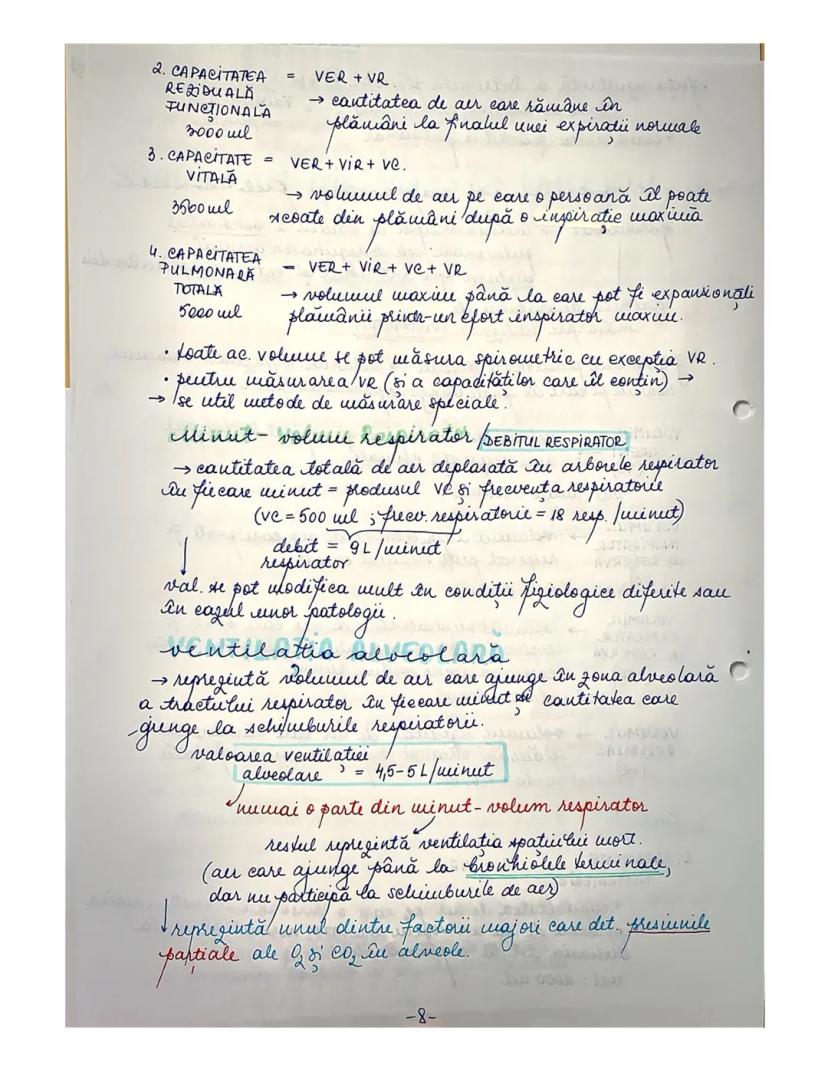 2. CAPACITATEA = VER + VR.
REZIDUALĂ → cantitatea de aer care rămâne în
FUNCȚIONALĂ plămâni la finalul unei expirații normale
3000 ml
3. CAPACITATE = VER + VIR + VC.
VITALĂ → volumul de aer pe care o persoană îl poate
3500 ml scoate din plămâni după o inspirație maximă
4. CAPACITATEA
PULMONARĂ = VER + VIR + VC + VR
TOTALĂ → volumul maxim până la care pot fi expansionați
5000 ml plămânii printr-un efort inspirator maxim.
• toate ac. volume se pot măsura spirometric cu excepția VR.
• pentru măsurarea VR (și a capacităților care îl conțin) →
→ se util metode de măsurare speciale.
Minut-volum respirator / DEBITUL RESPIRATOR
→ cantitatea totală de aer deplasată în arborele respirator
în fiecare minut = produsul VC și frecvența respiratorie
(VC = 500 ml ; frecv. respiratorie = 18 resp. /minut)
debit = 9L /minut
respirator
val. se pot modifica mult în condiții fiziologice diferite sau
în cazul unor patologii.
ventilația alveolară
→ reprezintă volumul de aer care ajunge în zona alveolară
a tractului respirator în fiecare minut și cantitatea care
ajunge la schimburile respiratorii.
valoarea ventilației
alveolare = 4,5-5 L/minut
numai o parte din minut-volum respirator
restul reprezintă ventilația spațiului mort.
(aer care ajunge până la bronhiolele terminale,
dar nu participă la schimburile de aer)
reprezintă unul dintre factorii majori care det. presiunile
parțiale ale O₂ și CO₂ în alveole.
-8-